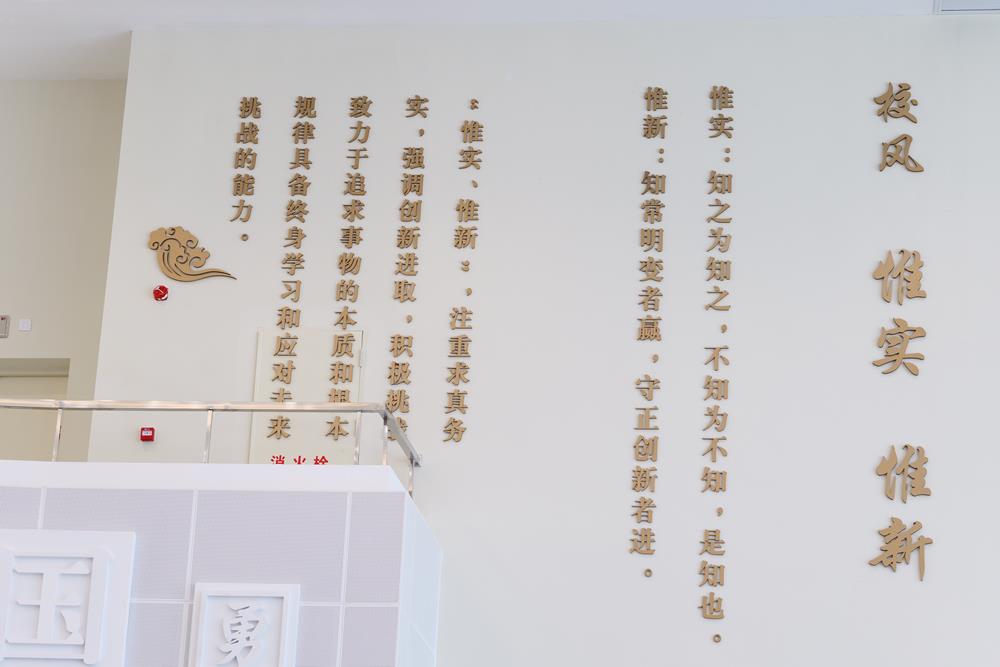 校风 惟实 惟新
惟实：知之为知之，不知为不知，是知也。
惟新：知常明变者赢，守正创新者进。
“惟实、惟新”，注重求真务
实，强调创新进取，积极挑战
致力于追求事物的本质和根本
规律具备终身学习和应对未来
挑战的能力。
消火栓
国
勇